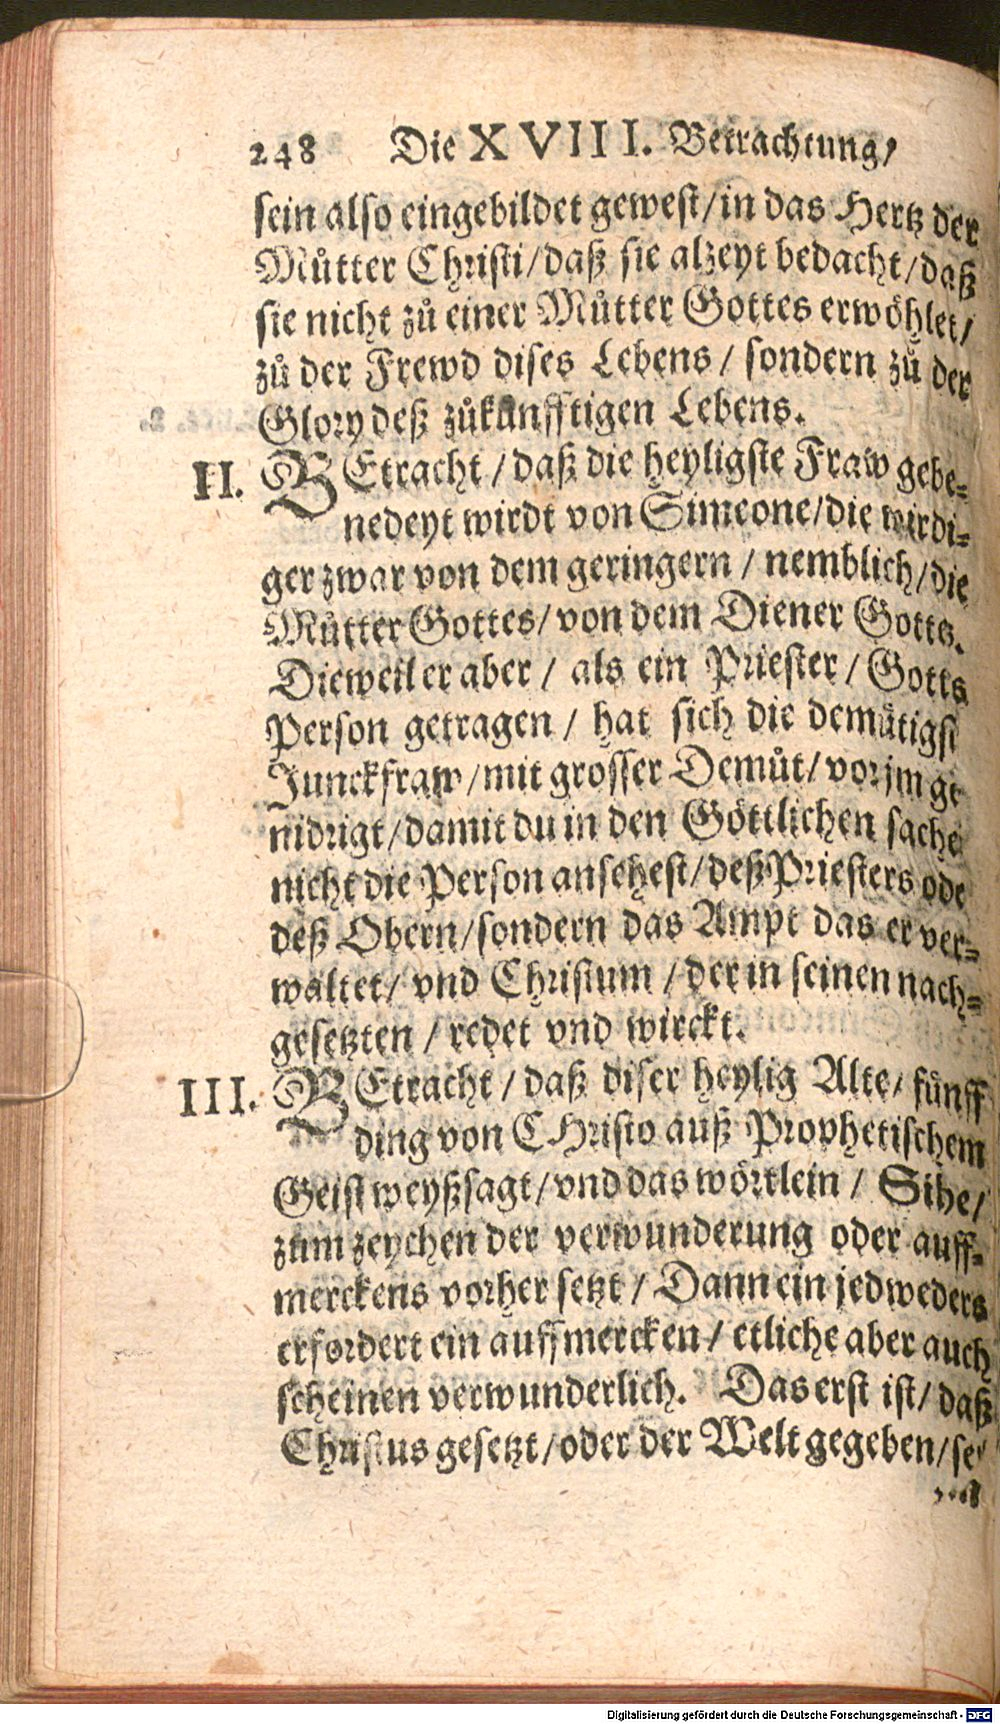 248 Die XVIII. Betrachtung/
sein also eingebildet gewest/in das Hertz der
Můtter Christi/daß sie alzeyt bedacht/daß
sie nicht zů einer Můtter Gottes erwöhlet/
zů der Frewd dises Lebens/ sondern zů der
Glory deß zůkünfftigen Lebens.
II. BEtracht/daß die heyligste Fraw gebe-
nedeyt wirdt von Simeone/die wirdi-
ger zwar von dem geringern/ nemblich/die
Můtter Gottes/von dem Diener Gottes.
Dieweil er aber/ als ein Priester/ Gotts
Person getragen/ hat sich die demůtigst
Junckfraw/mit grosser Demůt/vor jm ge
nidrigt/damit du in den Göttlichen sache
nicht die Person ansehest/deß Priesters ode
deß Obern/sondern das Ampt das er ver-
waltet/ vnd Christum/der in seinen nach-
gesetzten/ redet vnd wirckt.
III. BEtracht/daß diser heylig Alte/ fünff
ding von CHristo auß Prophetischem
Geist weyßsagt/vnd das wörtlein/ Sihe/
zum zeychen der verwunderung oder auff-
merckens vorher setzt/ Dann ein jedweders
erfordert ein auffmercken/ etliche aber auch
scheinen verwunderlich. Das erst ist/ daß
Christus gesetzt/oder der Welt gegeben/se
Digitalisierung gefördert durch die Deutsche Forschungsgemeinschaft - DFG